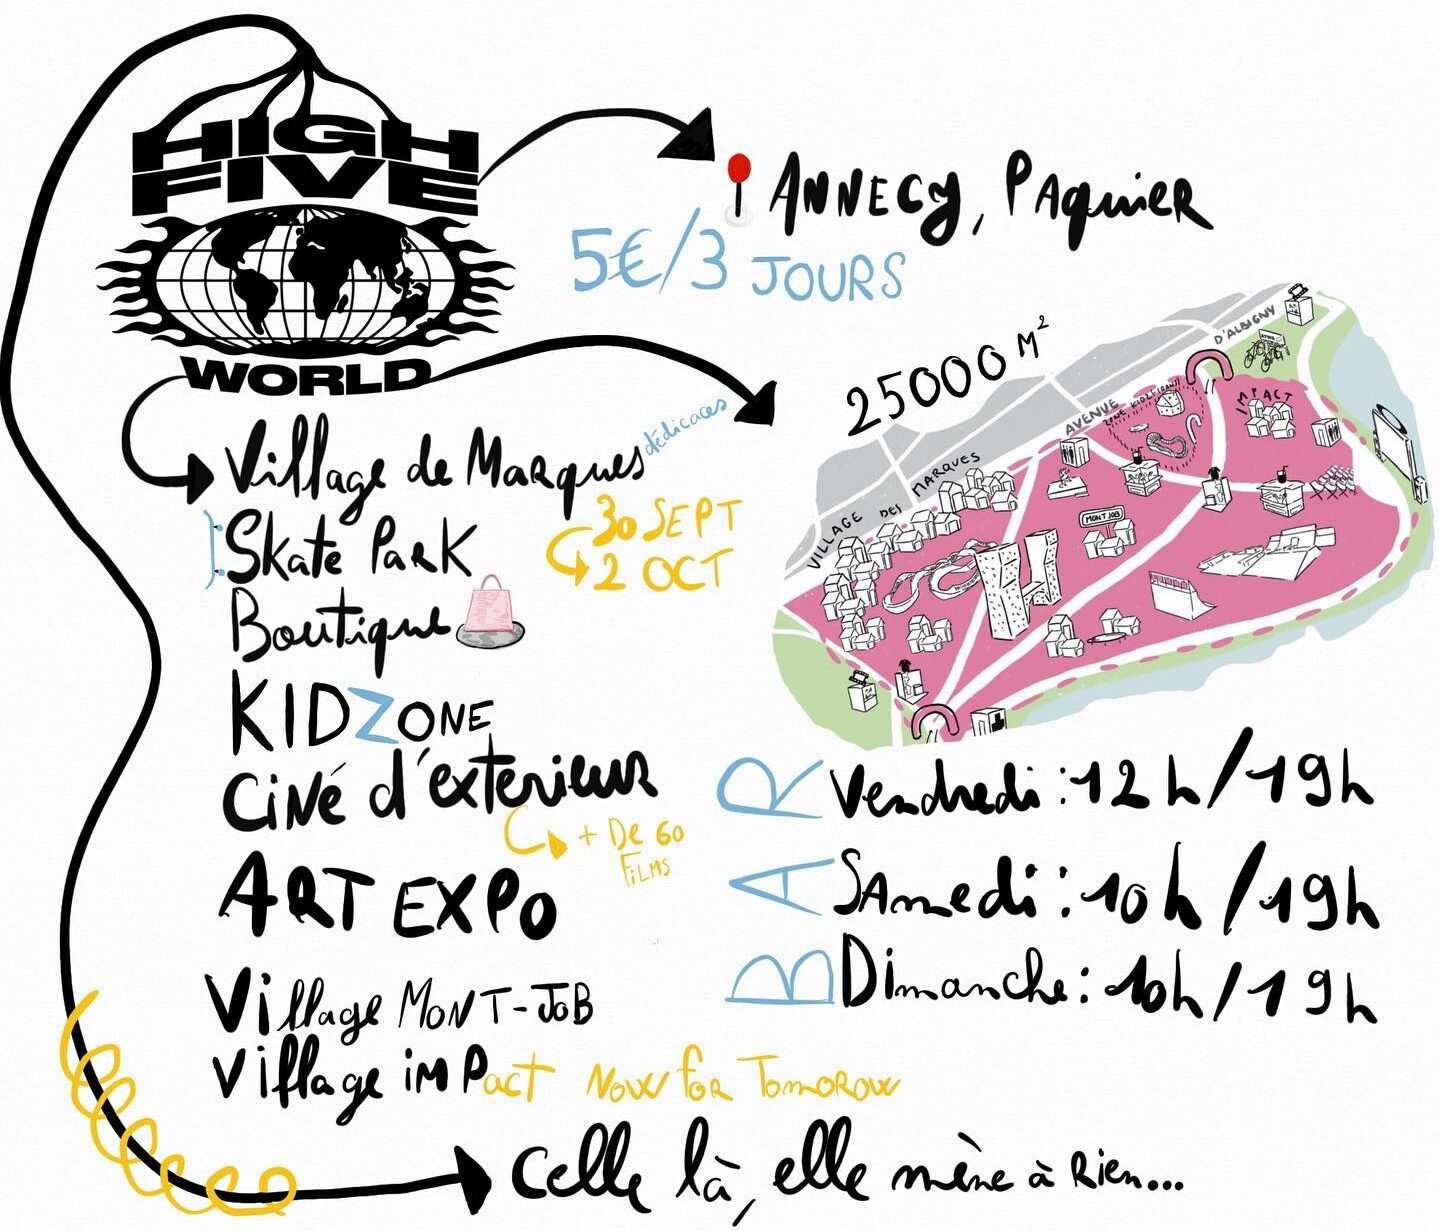 HIGH
FIVE
WORLD
ANNECY, PAquiER
5€/3 JOURS
25000 M²
D'ALBIGNY
AVENUE
VILLAGE DES MARQUES
IMPACT
MONT JOB
Village de MaRques
dédicaces
30 SEPT
2 OCT
Skate PaRK
Boutique
KIDZONE
CiNé d'exterieur
+ De 60
FiLMS
ART EXPO
Village MONT-JoB
Village iMPact Now foR TomoRow
BAR
Vendredi : 12h/19h
SAmedi : 10h/19h
Dimanche : 10h/19h
Celle là, elle mène à Rien...